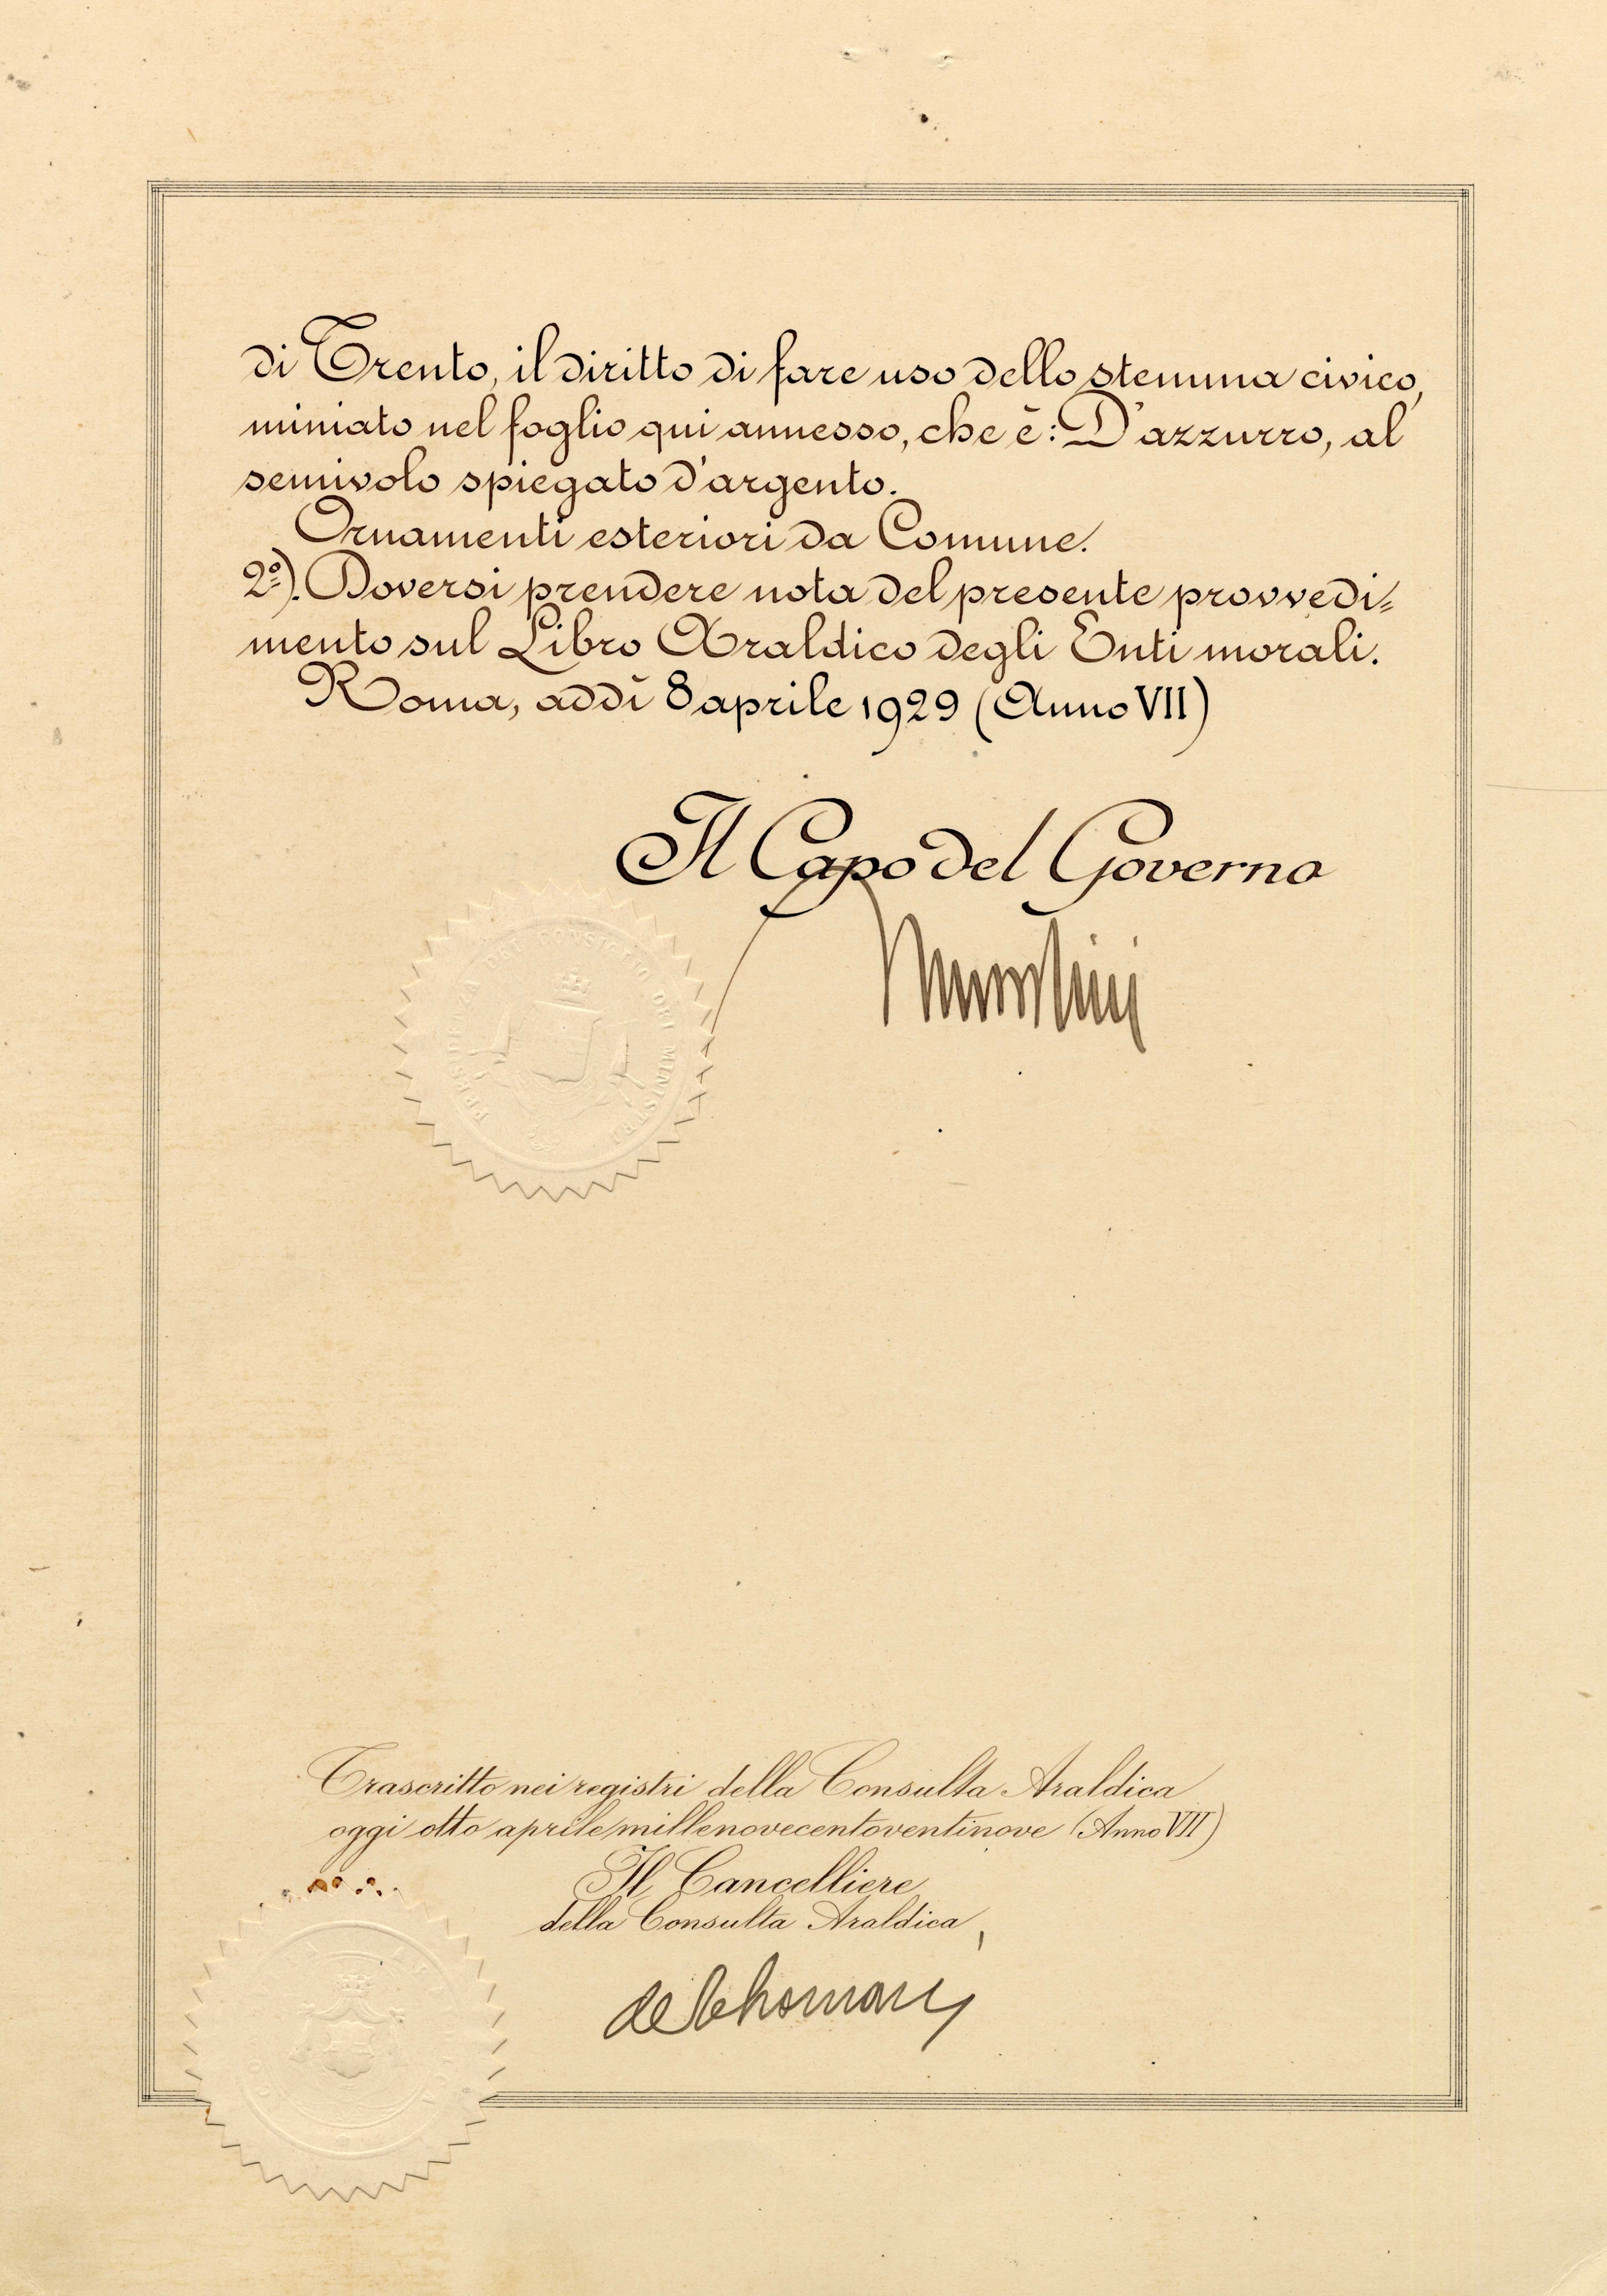 di Trento, il diritto di fare uso dello stemma civico,
miniato nel foglio qui annesso, che è: D'azzurro, al
semivolo spiegato d'argento.
Ornamenti esteriori da Comune.
2º). Doversi prendere nota del presente provvedi=
mento sul Libro Araldico degli Enti morali.
Roma, addì 8 aprile 1929 (Anno VII)
Il Capo del Governo
Mussolini
PRESIDENZA DEL CONSIGLIO DEI MINISTRI
Trascritto nei registri della Consulta Araldica
oggi otto aprile millenovecentoventinove (Anno VII)
Il Cancelliere
della Consulta Araldica